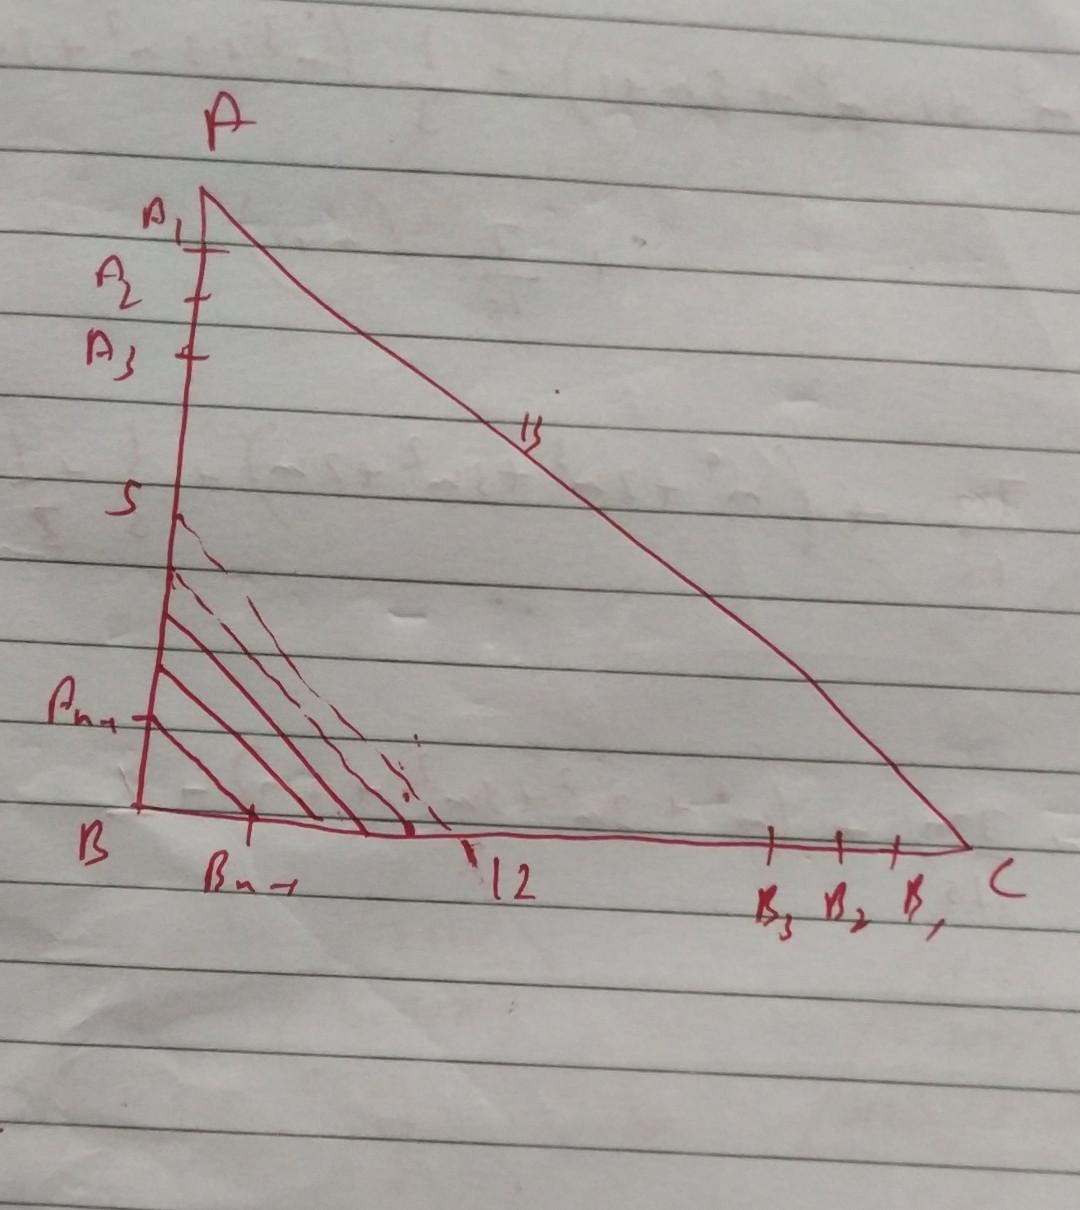 A
A1
A2
A3
13
5
An-1
B
Bn-1
12
B3 B2 B1
C